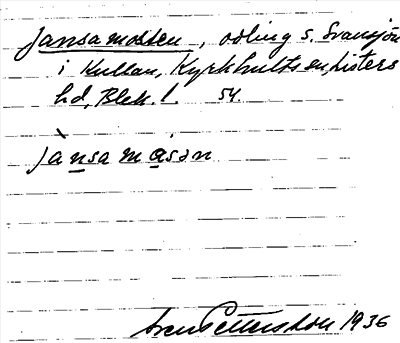 Jansamossen, odling s. Svansjön
i Kullan, Kyrkhults sn, Listers
hd, Blek. l. 54.
jànsa mɑsən
Sven Pettersson 1936